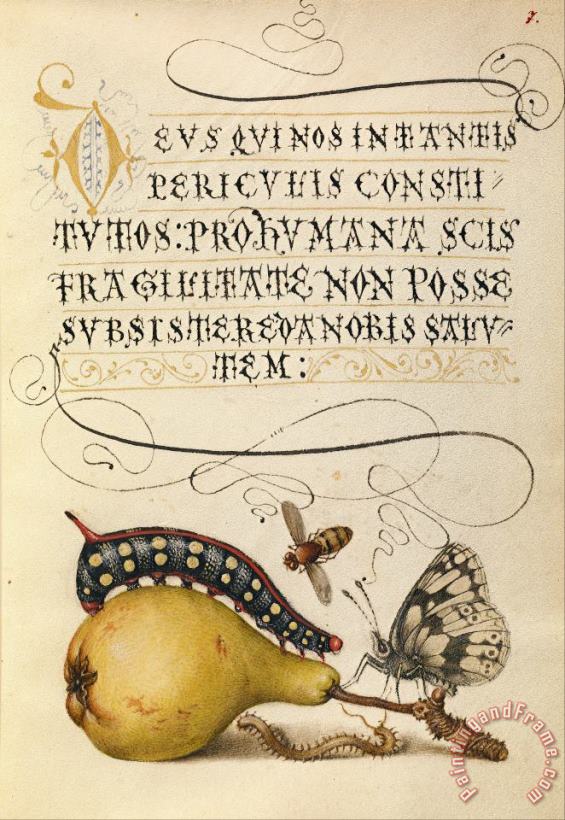 7.
DEVS QVI NOS IN TANTIS
PERICVLIS CONSTI=
TVTOS: PRO HVMANA SCIS
FRAGILITATE NON POSSE
SVBSISTERE DA NOBIS SALV=
TEM:
PaintingandFrame.com